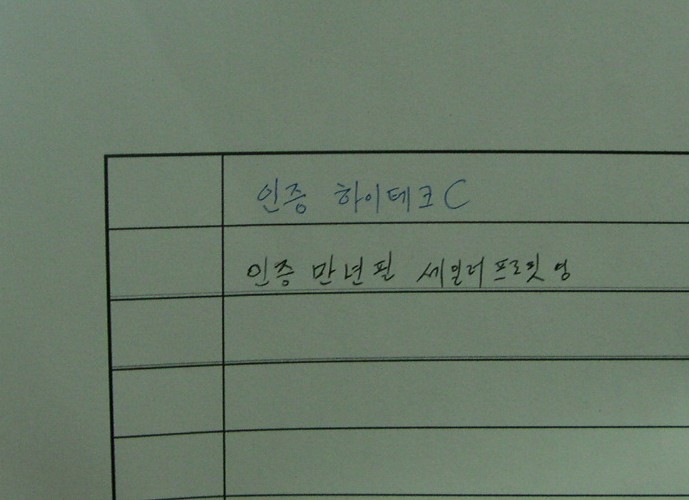 인증 하이테크C
인증 만년필 세일러프로핏 영